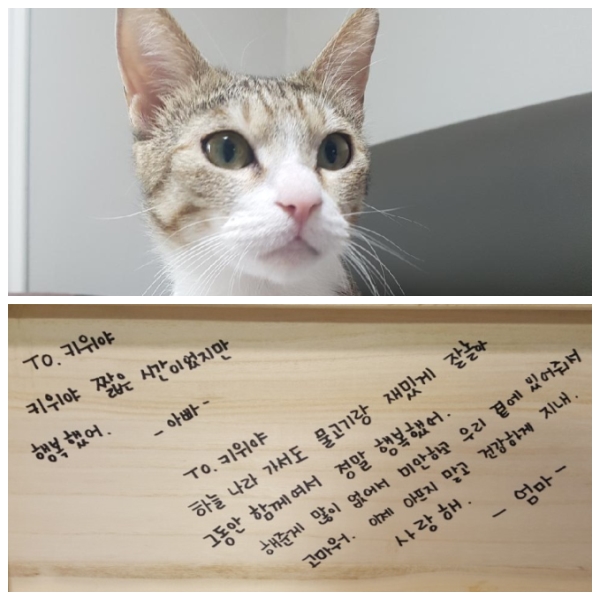 TO. 키위야
키위야 짧은 시간이었지만
행복했어. -아빠-
TO. 키위야
하늘 나라 가서도 물고기랑 재밌게 잘놀아
그동안 함께여서 정말 행복했어.
해준게 많이 없어서 미안하고 우리 곁에 있어줘서
고마워. 이제 아프지 말고 건강하게 지내.
사랑해. -엄마-